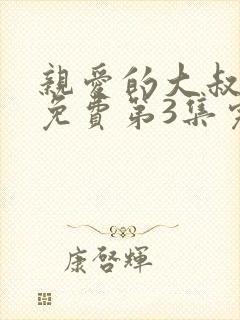 親愛的大叔
免費第3集
康啓輝